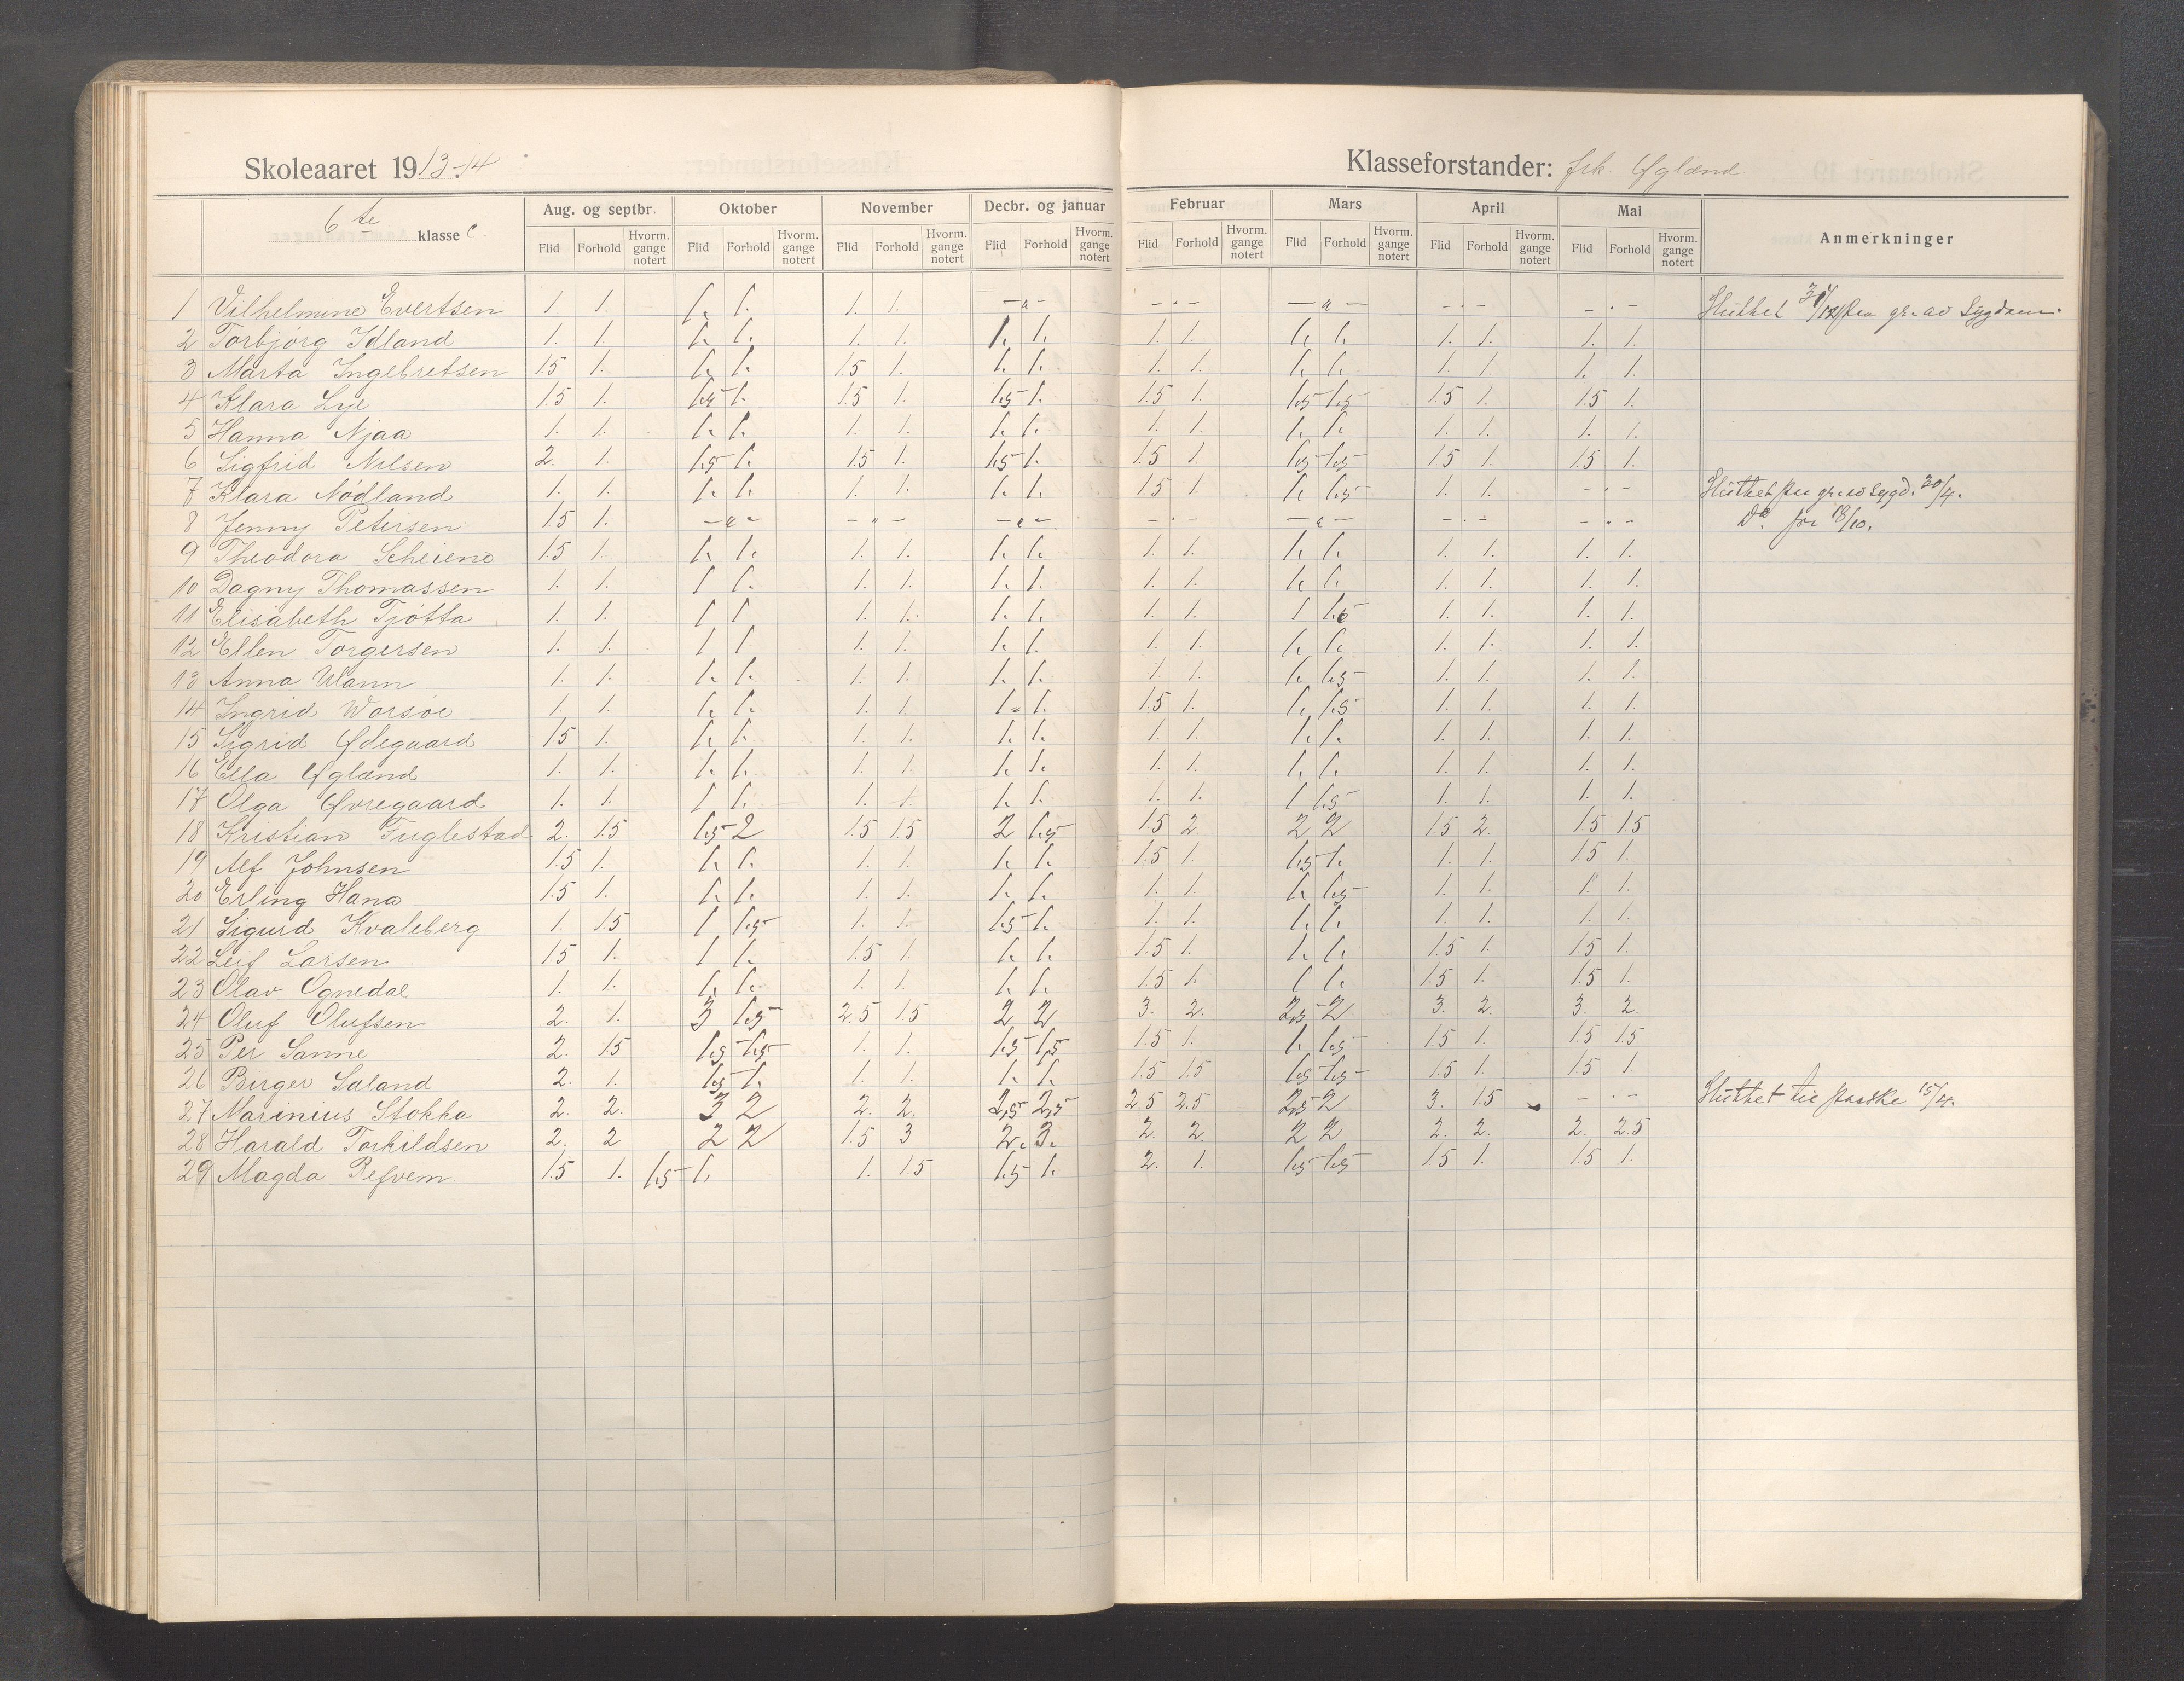 Skoleaaret 1913-14
Klasseforstander: frk. Øglænd
6te klasse C.
Aug. og septbr. Oktober November Decbr. og januar Februar Mars April Mai Anmerkninger
Flid Forhold Hvorm. gange notert Flid Forhold Hvorm. gange notert Flid Forhold Hvorm. gange notert Flid Forhold Hvorm. gange notert Flid Forhold Hvorm. gange notert Flid Forhold Hvorm. gange notert Flid Forhold Hvorm. gange notert Flid Forhold Hvorm. gange notert
1 Vilhelmine Evertsen 1. 1. 1. 1. 1. 1. —„— —„— —„— —„— —„— Sluttet paa gr. av Sygdom.
2 Torbjørg Idland 1. 1. 1. 1. 1. 1. 1. 1. 1. 1. 1. 1. 1. 1. 1. 1.
3 Marta Ingebretsen 1.5 1. 1. 1. 1.5 1. 1. 1. 1. 1. 1. 1. 1. 1. 1. 1.
4 Klara Lye 1.5 1. 1.5 1. 1.5 1. 1.5 1. 1.5 1. 1.5 1.5 1.5 1. 1.5 1.
5 Hanna Njaa 1. 1. 1. 1. 1. 1. 1. 1. 1. 1. 1. 1. 1. 1. 1. 1.
6 Sigfrid Nilsen 2. 1. 1.5 1. 1.5 1. 1.5 1. 1.5 1. 1.5 1.5 1.5 1. 1.5 1.
7 Klara Nødland 1. 1. 1. 1. 1. 1. 1. 1. 1.5 1. 1. 1.5 1. 1. —„— Sluttet paa gr. av Sygd. 30/4.
8 Jenny Petersen 1.5 1. —„— —„— —„— —„— —„— —„— —„— Do. fra 18/10.
9 Theodora Scheiene 1.5 1. 1. 1. 1. 1. 1. 1. 1. 1. 1. 1. 1. 1. 1. 1.
10 Dagny Thomassen 1. 1. 1 1. 1. 1. 1. 1. 1. 1. 1. 1. 1. 1. 1. 1.
11 Elisabeth Tjøtta 1. 1. 1 1 1. 1. 1. 1. 1. 1. 1 1.5 1. 1. 1. 1.
12 Ellen Torgersen 1. 1. 1 1 1. 1. 1. 1. 1. 1. 1. 1. 1. 1. 1. 1.
13 Anna Wann 1. 1. 1. 1. 1. 1. 1. 1. 1. 1. 1. 1.5 1. 1. 1. 1.
14 Ingrid Worsøe 1. 1. 1. 1. 1. 1. 1. 1. 1.5 1. 1. 1.5 1. 1. 1. 1.
15 Sigrid Ødegaard 1.5 1. 1. 1. 1. 1. 1. 1. 1. 1. 1. 1. 1. 1. 1. 1.
16 Ella Øglænd 1. 1. 1. 1. 1. 1. 1. 1. 1. 1. 1. 1. 1. 1. 1. 1.
17 Olga Øvregaard 1. 1. 1 1. 1. 1. 1. 1. 1. 1. 1 1.5 1. 1. 1. 1.
18 Kristian Fuglestad 2. 1.5 1.5 2 1.5 1.5 2 1.5 1.5 2. 2 2 1.5 2. 1.5 1.5
19 Alf Johnsen 1.5 1. 1. 1. 1. 1. 1. 1. 1.5 1. 1.5 1. 1. 1. 1.5 1.
20 Erling Hana 1.5 1. 1. 1. 1. 1. 1. 1. 1. 1. 1. 1.5 1. 1. 1. 1.
21 Sigurd Kvaleberg 1. 1.5 1 1.5 1. 1. 1.5 1. 1. 1. 1. 1. 1. 1. 1. 1.
22 Leif Larsen 1.5 1. 1 1. 1.5 1. 1. 1. 1.5 1. 1. 1. 1.5 1. 1.5 1.
23 Olav Ognedal 1. 1. 1. 1. 1. 1. 1. 1. 1.5 1. 1 1. 1.5 1. 1.5 1.
24 Oluf Olufsen 2. 1. 3 1.5 2.5 1.5 2 2 3. 2. 2.5 2 3. 2. 3. 2.
25 Per Sanne 2. 1.5 1.5 1.5 1. 1. 1.5 1.5 1.5 1. 1. 1.5 1.5 1. 1.5 1.5
26 Birger Søland 2. 1. 1.5 1. 1. 1. 1. 1. 1.5 1.5 1.5 1.5 1.5 1. 1.5 1.
27 Marinius Stokka 2. 2. 3 2 2. 2. 2,5 2,5 2.5 2.5 2.5 2 3. 1.5 —„— Sluttet til paaske 15/4.
28 Harald Torkildsen 2. 2 2 2 1.5 3 2. 3. 2. 2. 2 2 2. 2. 2. 2.5
29 Magda Refvem 1.5 1. 1.5 1. 1. 1.5 1.5 1. 2. 1. 1.5 1.5 1.5 1. 1.5 1.